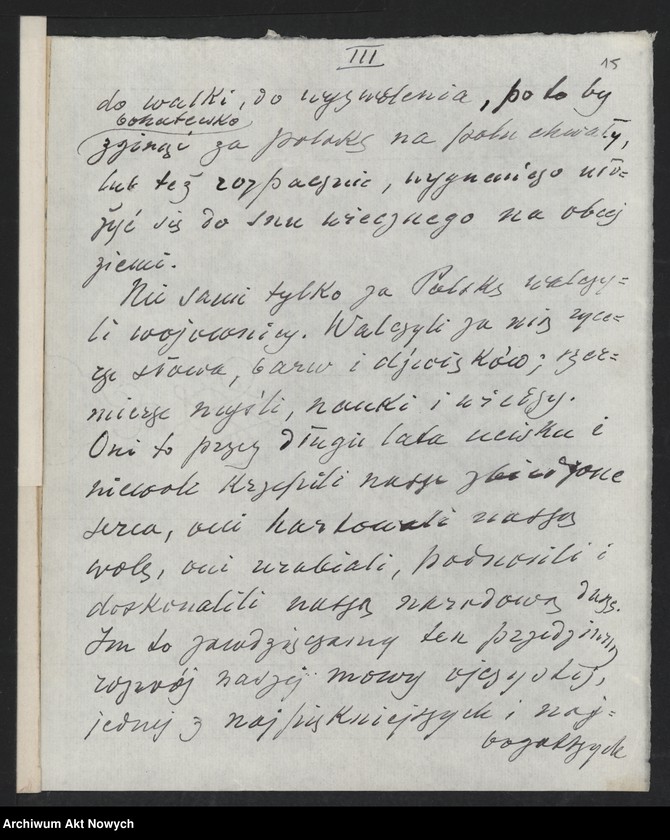 III
15
do walki, do wyzwolenia, po to by
bohatersko
zginąć za Polskę na polu chwały,
lub też rozpacznie, wygnańczo uło-
żyć się do snu wiecznego na obcej
ziemi.
Nie sami tylko za Polskę walczy-
li wojownicy. Walczyli za nią ryce-
rze słowa, barw i dźwięków; szer-
mierze myśli, nauki i wiedzy.
Oni to przez długie lata ucisku i
niewoli krzepili nasze
serca, oni hartowali naszą
wolę, oni urabiali, podnosili i
doskonalili naszą narodową duszę.
Im to zawdzięczamy ten przedziwny
rozwój naszej mowy ojczystej,
jednej z najpiękniejszych i naj-
bogatszych
Archiwum Akt Nowych